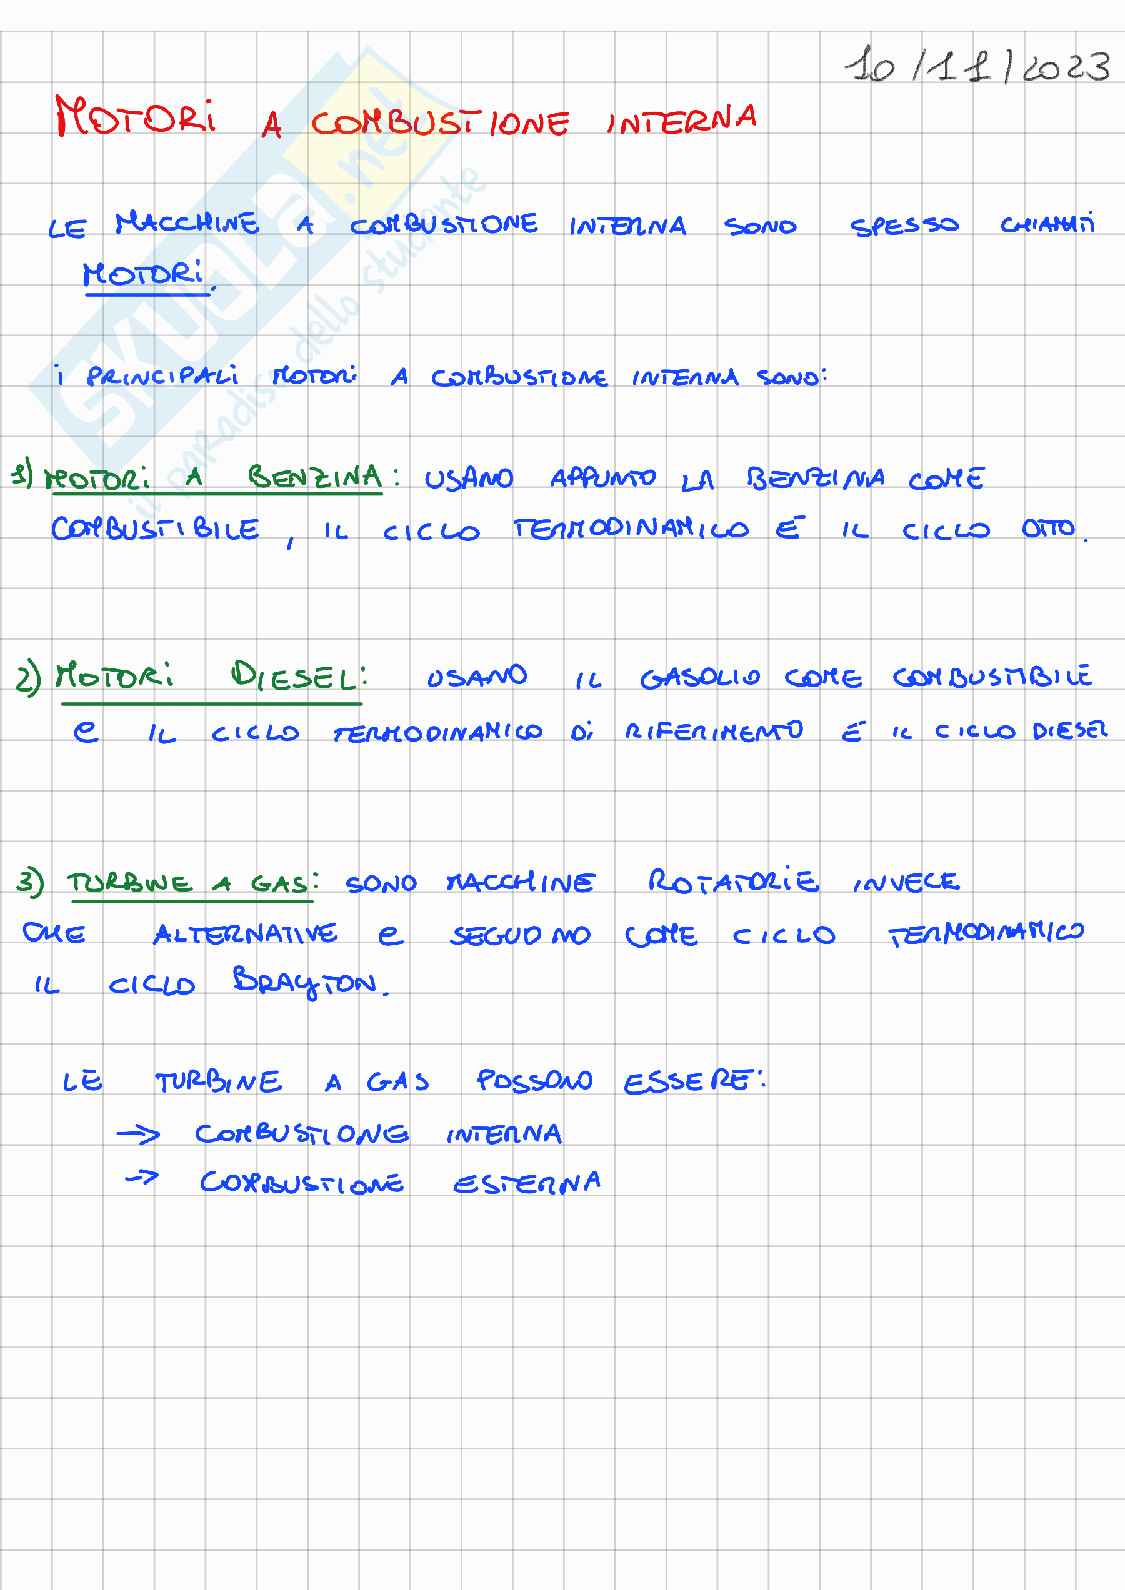 10/11/2023
MOTORI A COMBUSTIONE INTERNA
LE MACCHINE A COMBUSTIONE INTERNA SONO SPESSO CHIAMATI
MOTORI.
I PRINCIPALI MOTORI A COMBUSTIONE INTERNA SONO:
1) MOTORI A BENZINA: USANO APPUNTO LA BENZINA COME
COMBUSTIBILE, IL CICLO TERMODINAMICO E' IL CICLO OTTO.
2) MOTORI DIESEL: USANO IL GASOLIO COME COMBUSTIBILE
e IL CICLO TERMODINAMICO DI RIFERIMENTO E' IL CICLO DIESEL
3) TURBINE A GAS: SONO MACCHINE ROTATORIE INVECE
CHE ALTERNATIVE e SEGUONO COME CICLO TERMODINAMICO
IL CICLO BRAYTON.
LE TURBINE A GAS POSSONO ESSERE:
→ COMBUSTIONE INTERNA
→ COMBUSTIONE ESTERNA
SKUOLA.net
il paradiso dello studente